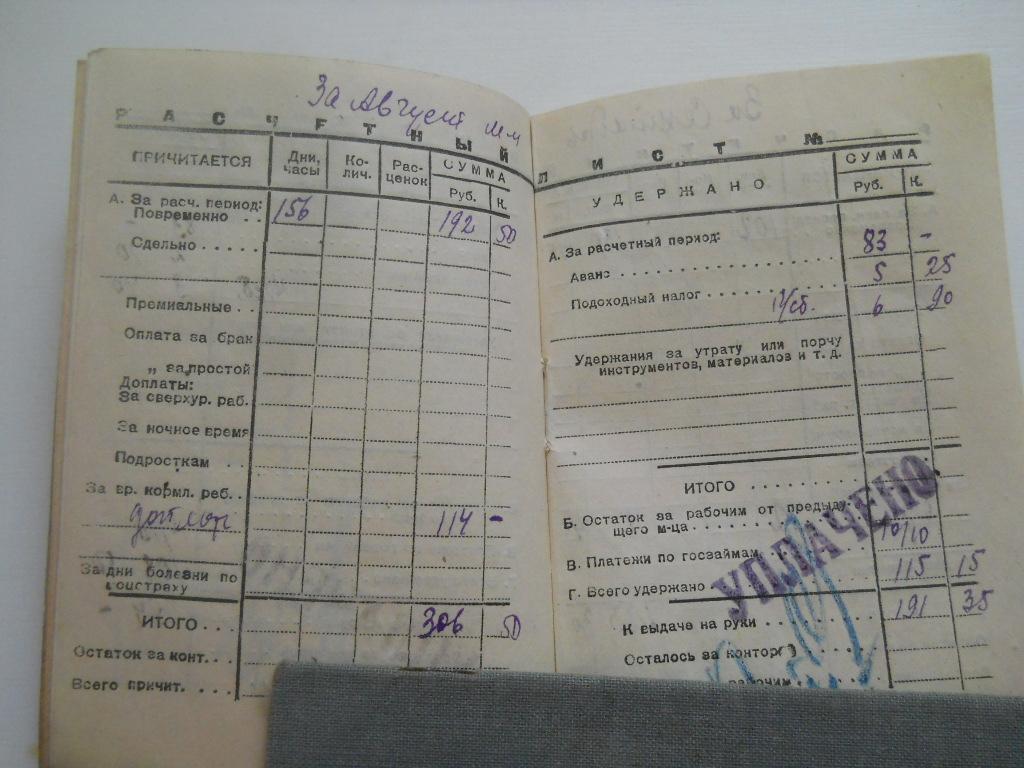 За Август м-ц
РАСЧЕТНЫЙ
ПРИЧИТАЕТСЯ Дни, часы Ко-лич. Рас-ценок СУММА
Руб. К.
А. За расч. период:
Повременно . . 156 192 50
Сдельно . . . . .
Премиальные . .
Оплата за брак
„ за простой
Доплаты:
За сверхур. раб.
За ночное время
Подросткам . .
За вр. кормл. реб. .
114 -
За дни болезни по
соцстраху
ИТОГО . . . 306 50
Остаток за конт. . .
Всего причит. . . . .
ЛИСТ №
УДЕРЖАНО СУММА
Руб. К.
А. За расчетный период: 83 -
Аванс 5 25
Подоходный налог 6 90
Удержания за утрату или порчу
инструментов, материалов и т. д.
ИТОГО
Б. Остаток за рабочим от предыду
щего м-ца
В. Платежи по госзаймам 10/10
Г. Всего удержано 115 15
К выдаче на руки 191 35
Осталось за конторой
рабочим
УПЛАЧЕНО
За Сентябрь